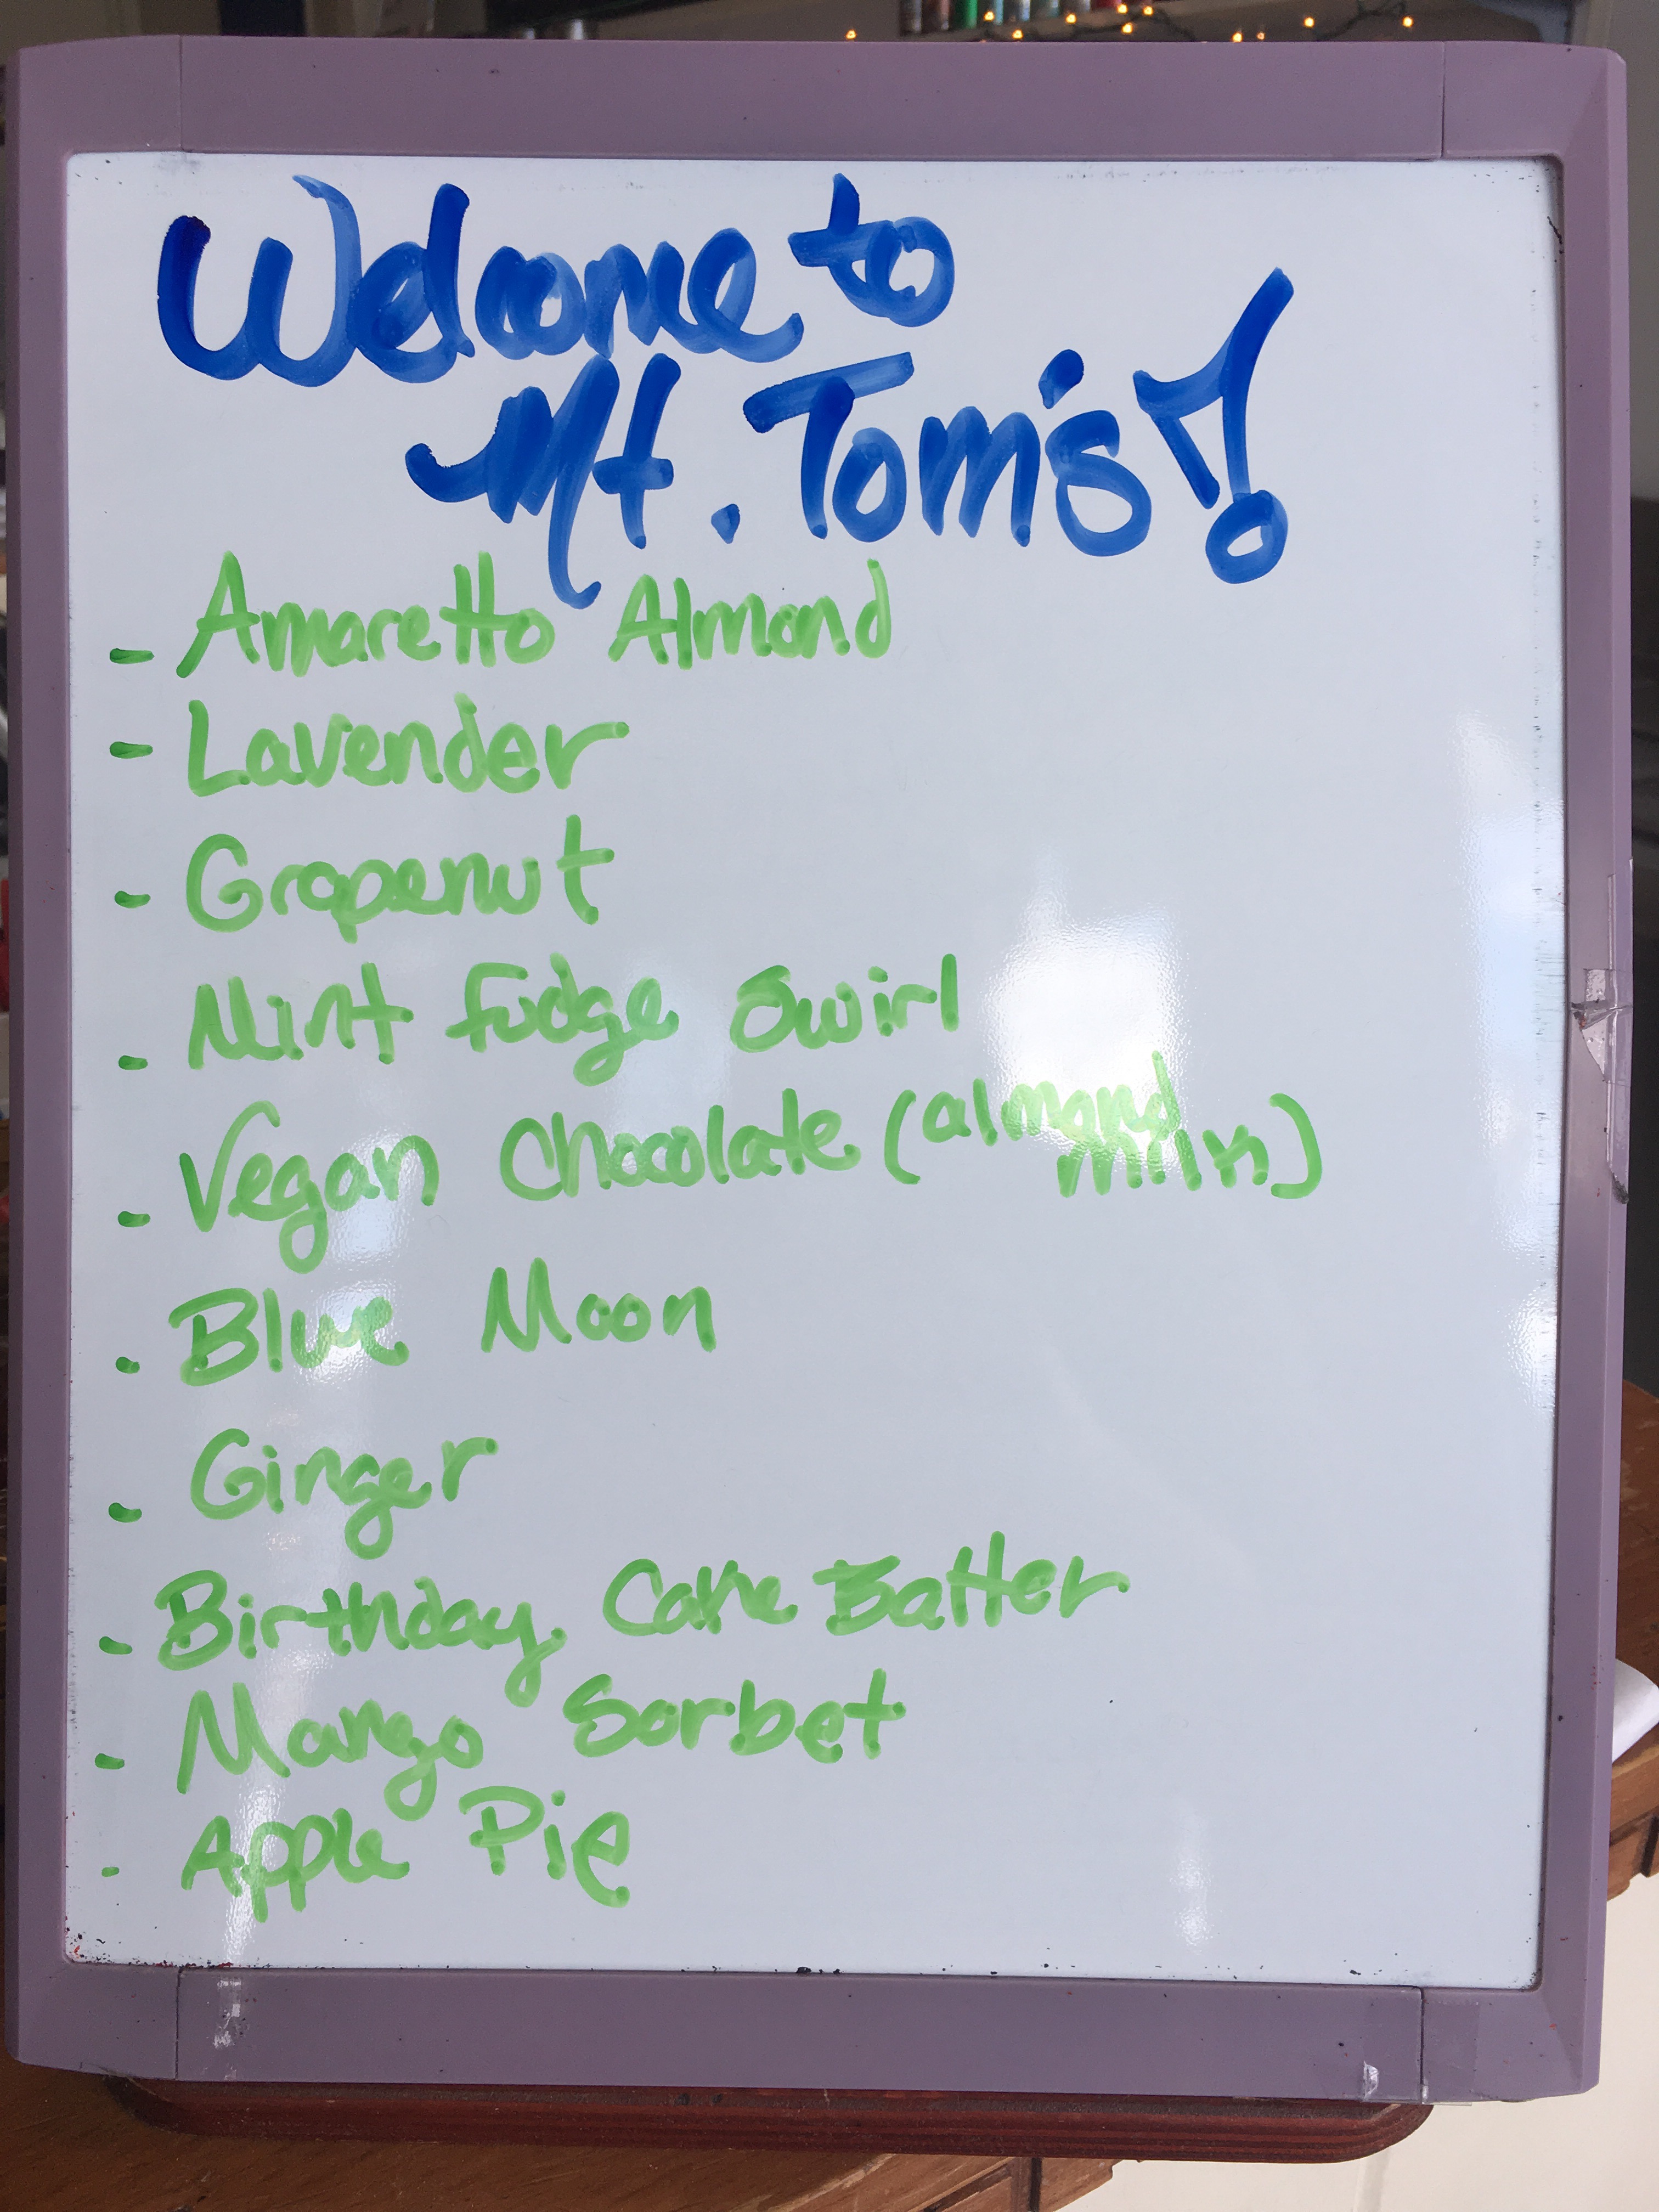 Welcome to
Mt. Tom's!
- Amaretto Almond
- Lavender
- Grapenut
- Mint fudge swirl
- Vegan Chocolate (almond
milk)
- Blue Moon
- Ginger
- Birthday Cake Batter
- Mango Sorbet
- Apple Pie